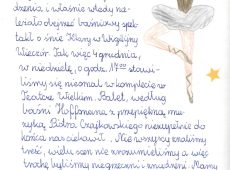 dzenia i właśnie wtedy nie-
teralo obejrzeć baśniowy spek-
takl o śnie Klary w Wigilijny
Wieczór. Tak więc 4 grudnia,
w niedzielę, o godz. 17⁰⁰ stawi-
liśmy się niemal w komplecie w
Teatrze Wielkim. Balet, według
baśni Hoffmana z przepiękną mu-
zyką Piotra Czajkowskiego niezupełnie do
końca nas ciekawił. Nie wszyscy znaliśmy
treść, wielu scen nie zrozumieliśmy a więc
trochę byliśmy niegrzeczni i znudzeni. Mamy